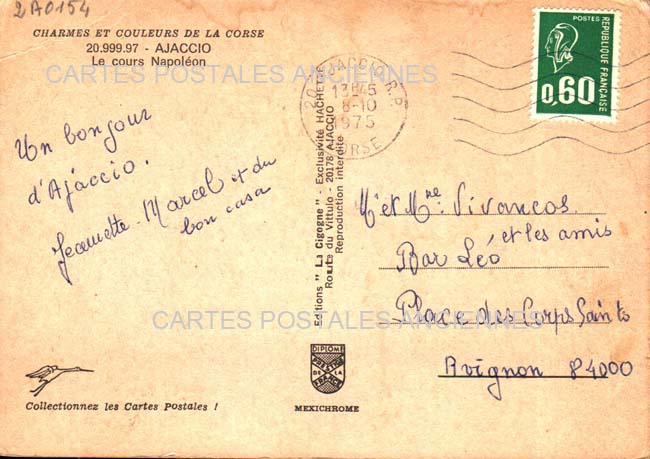 2A0154
CHARMES ET COULEURS DE LA CORSE
20.999.97 - AJACCIO
Le cours Napoléon
CARTES POSTALES ANCIENNES
Un bonjour
d'Ajaccio.
Jeannette - Marcel et du
bon casa
Editions " La Cigogne " - Exclusivité HACHETTE
Route du Vittulo - 20178 AJACCIO
Reproduction interdite
20 AJACCIO R.P.
13H45
8-10
1975
CORSE
POSTES
RÉPUBLIQUE FRANÇAISE
0,60
Mr et Mme Vivancos
et les amis
Bar Léo
Place des Corps Saints
Avignon 84000
CARTES POSTALES ANCIENNES
DIPLOME
PRESTIGE
DE LA
FRANCE
MEXICHROME
Collectionnez les Cartes Postales !